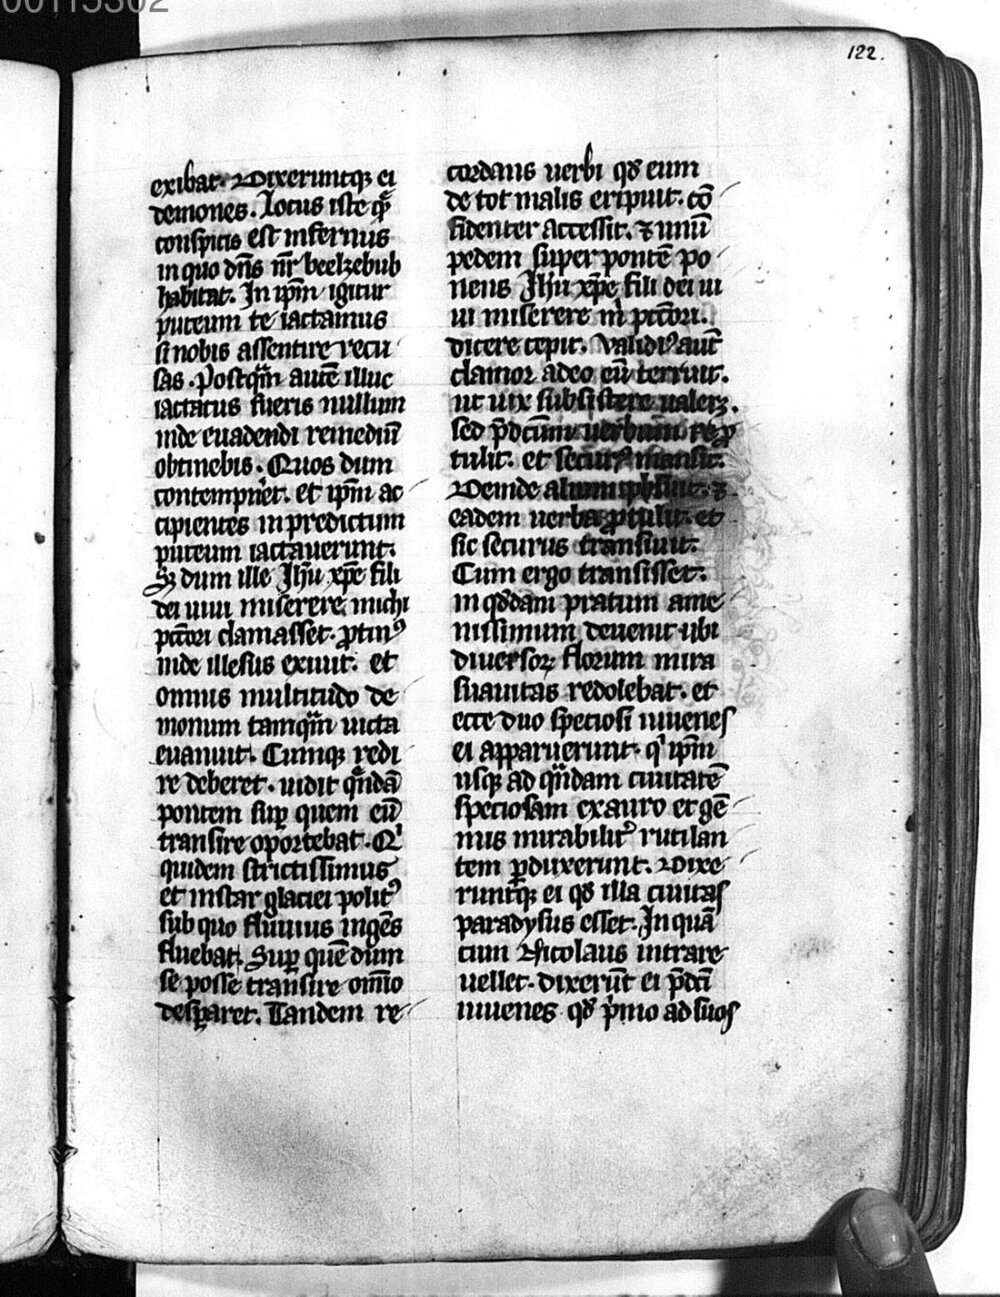 00115302
122.
exibat. Dixeruntqꝫ ei
demones. Locus iste quē
conspicis est infernus
in quo dn̄s nr̄ beelzebub
habitat. In ip̄m igitur
puteum te iactamus
si nobis assentire recu
sas. Postqꝫ̄m autē illuc
iactatus fueris nullum
inde euadendi remediū
obtinebis. Quos dum
contempn̄et. et ip̄m ac
cipientes in predictum
puteum iactauerunt.
Sꝫ dum ille Jh̄u xp̄e fili
dei uiui miserere michi
pctōri clamasset. ꝓtinꝰ
inde illesus exiuit. et
omnis multitudo de
monum tamqꝫ̄m uicta
euanuit. Cumqꝫ redi
re deberet. uidit qn̄dā
pontem suꝑ quem eū
transire oportebat. Qͥ
quidem strictissimus
et instar glaciei politꝰ
sub quo fluuius ingēs
fluebat. Suꝑ quē dum
se posse transire om̄io
desꝑaret. Tandem re
cordans uerbi qd̄ eum
de tot malis eripuit. cō
fidenter accessit. ⁊ unū
pedem super pontē po
nens Jh̄u xp̄e fili dei ui
ui miserere m̄ pctōri.
dicere cepit. Validꝰ aut̄
clamor adeo eū terruit.
ut uix subsistere ualeꝫ.
sed p̄dc̄um uerbum ꝓ
tulit. et securꝰ mansit.
Deinde alium ⁊
eadem uerba ꝓtulit. et
sic securus transiuit.
Cum ergo transisset.
in qd̄dam pratum ame
nissimum deuenit ubi
diuersoꝝ florum mira
suauitas redolebat. et
ecce duo speciosi iuuenes
ei apparuerunt. qͥ ip̄m
usqꝫ ad qn̄dam ciuitatē
speciosam ex auro et gē
mis mirabilitꝰ rutilan
tem ꝑduxerunt. Dixe
runtqꝫ ei qd̄ illa ciuitas
paradysus esset. In quā
cum Nicolaus intrare
uellet. dixerūt ei p̄dc̄i
iuuenes qd̄ p̄mo ad suos